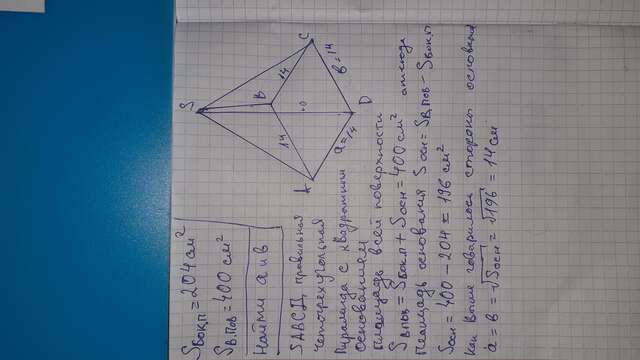 Sбок.п = 204 см²
Sв.пов = 400 см²
Найти а и в
SABCD, правильная
четырехугольная
пирамида с квадратным
основанием
площадь всей поверхности
Sвпов = Sбок.п + Sосн = 400 см² отсюда
Площадь основания Sосн = Sв.пов - Sбок.п
Sосн = 400 - 204 = 196 см²
как выше говорилось стороны основания
a = в = √Sосн = √196 = 14 см
S
B
C
A
D
o
14
14
a=14
в=14